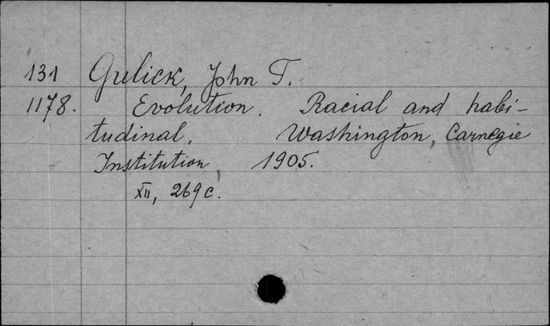 131 Gulick, John T.
1178. Evolution. Racial and habi-
tudinal. Washington, Carnegie
Institution, 1905.
XII, 269 c.